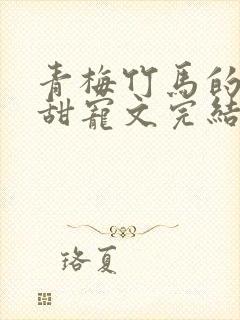 青梅竹馬的
甜寵文完結
珞夏